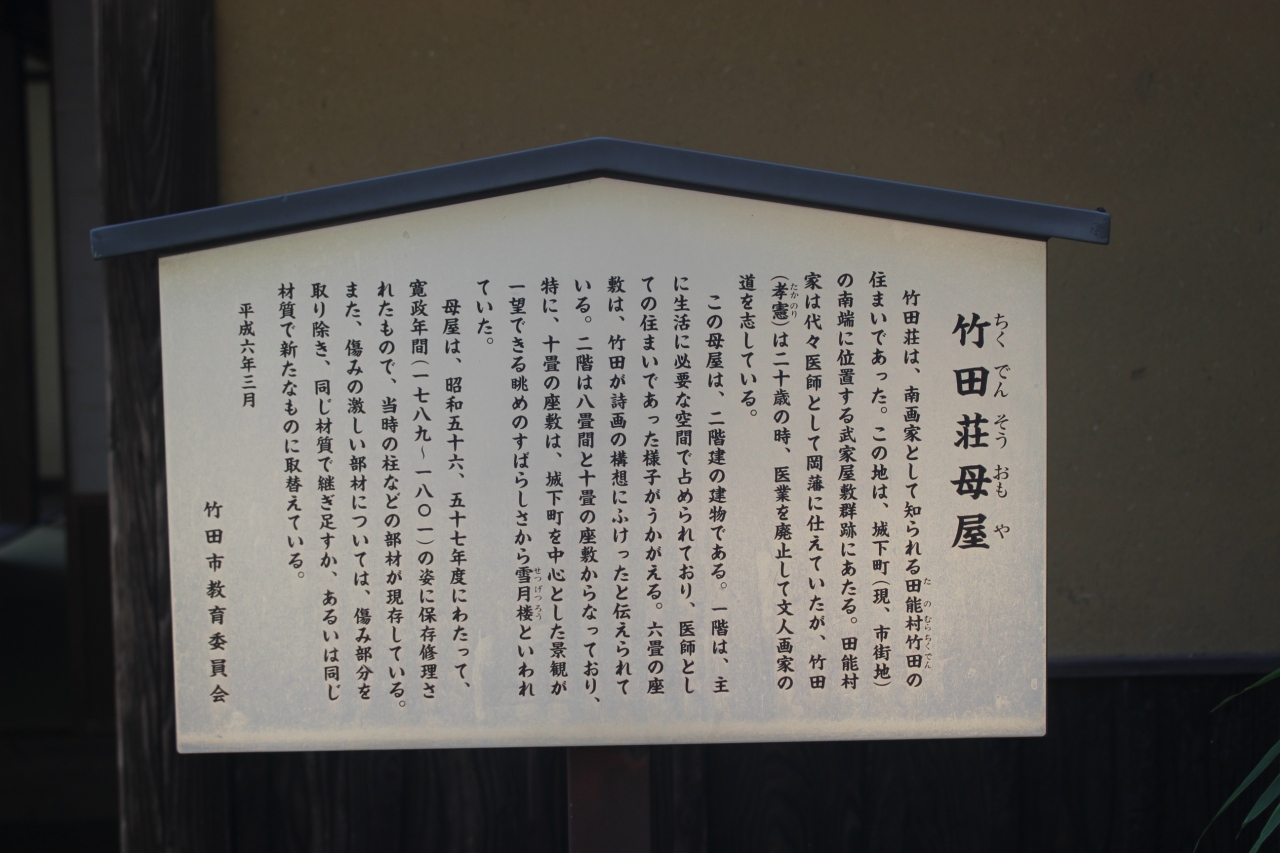 竹田荘母屋
ちくでんそうおもや
竹田荘は、南画家として知られる田能村竹田の
たのむらちくでん
住まいであった。この地は、城下町(現、市街地)
の南端に位置する武家屋敷群跡にあたる。田能村
家は代々医師として岡藩に仕えていたが、竹田
(孝憲)は二十歳の時、医業を廃止して文人画家の
たかのり
道を志している。
この母屋は、二階建の建物である。一階は、主
に生活に必要な空間で占められており、医師とし
ての住まいであった様子がうかがえる。六畳の座
敷は、竹田が詩画の構想にふけったと伝えられて
いる。二階は八畳間と十畳の座敷からなっており、
特に、十畳の座敷は、城下町を中心とした景観が
一望できる眺めのすばらしさから雪月楼といわれ
せつげつろう
ていた。
母屋は、昭和五十六、五十七年度にわたって、
寛政年間(一七八九〜一八〇一)の姿に保存修理さ
れたもので、当時の柱などの部材が現存している。
また、傷みの激しい部材については、傷み部分を
取り除き、同じ材質で継ぎ足すか、あるいは同じ
材質で新たなものに取替えている。
平成六年三月
竹田市教育委員会